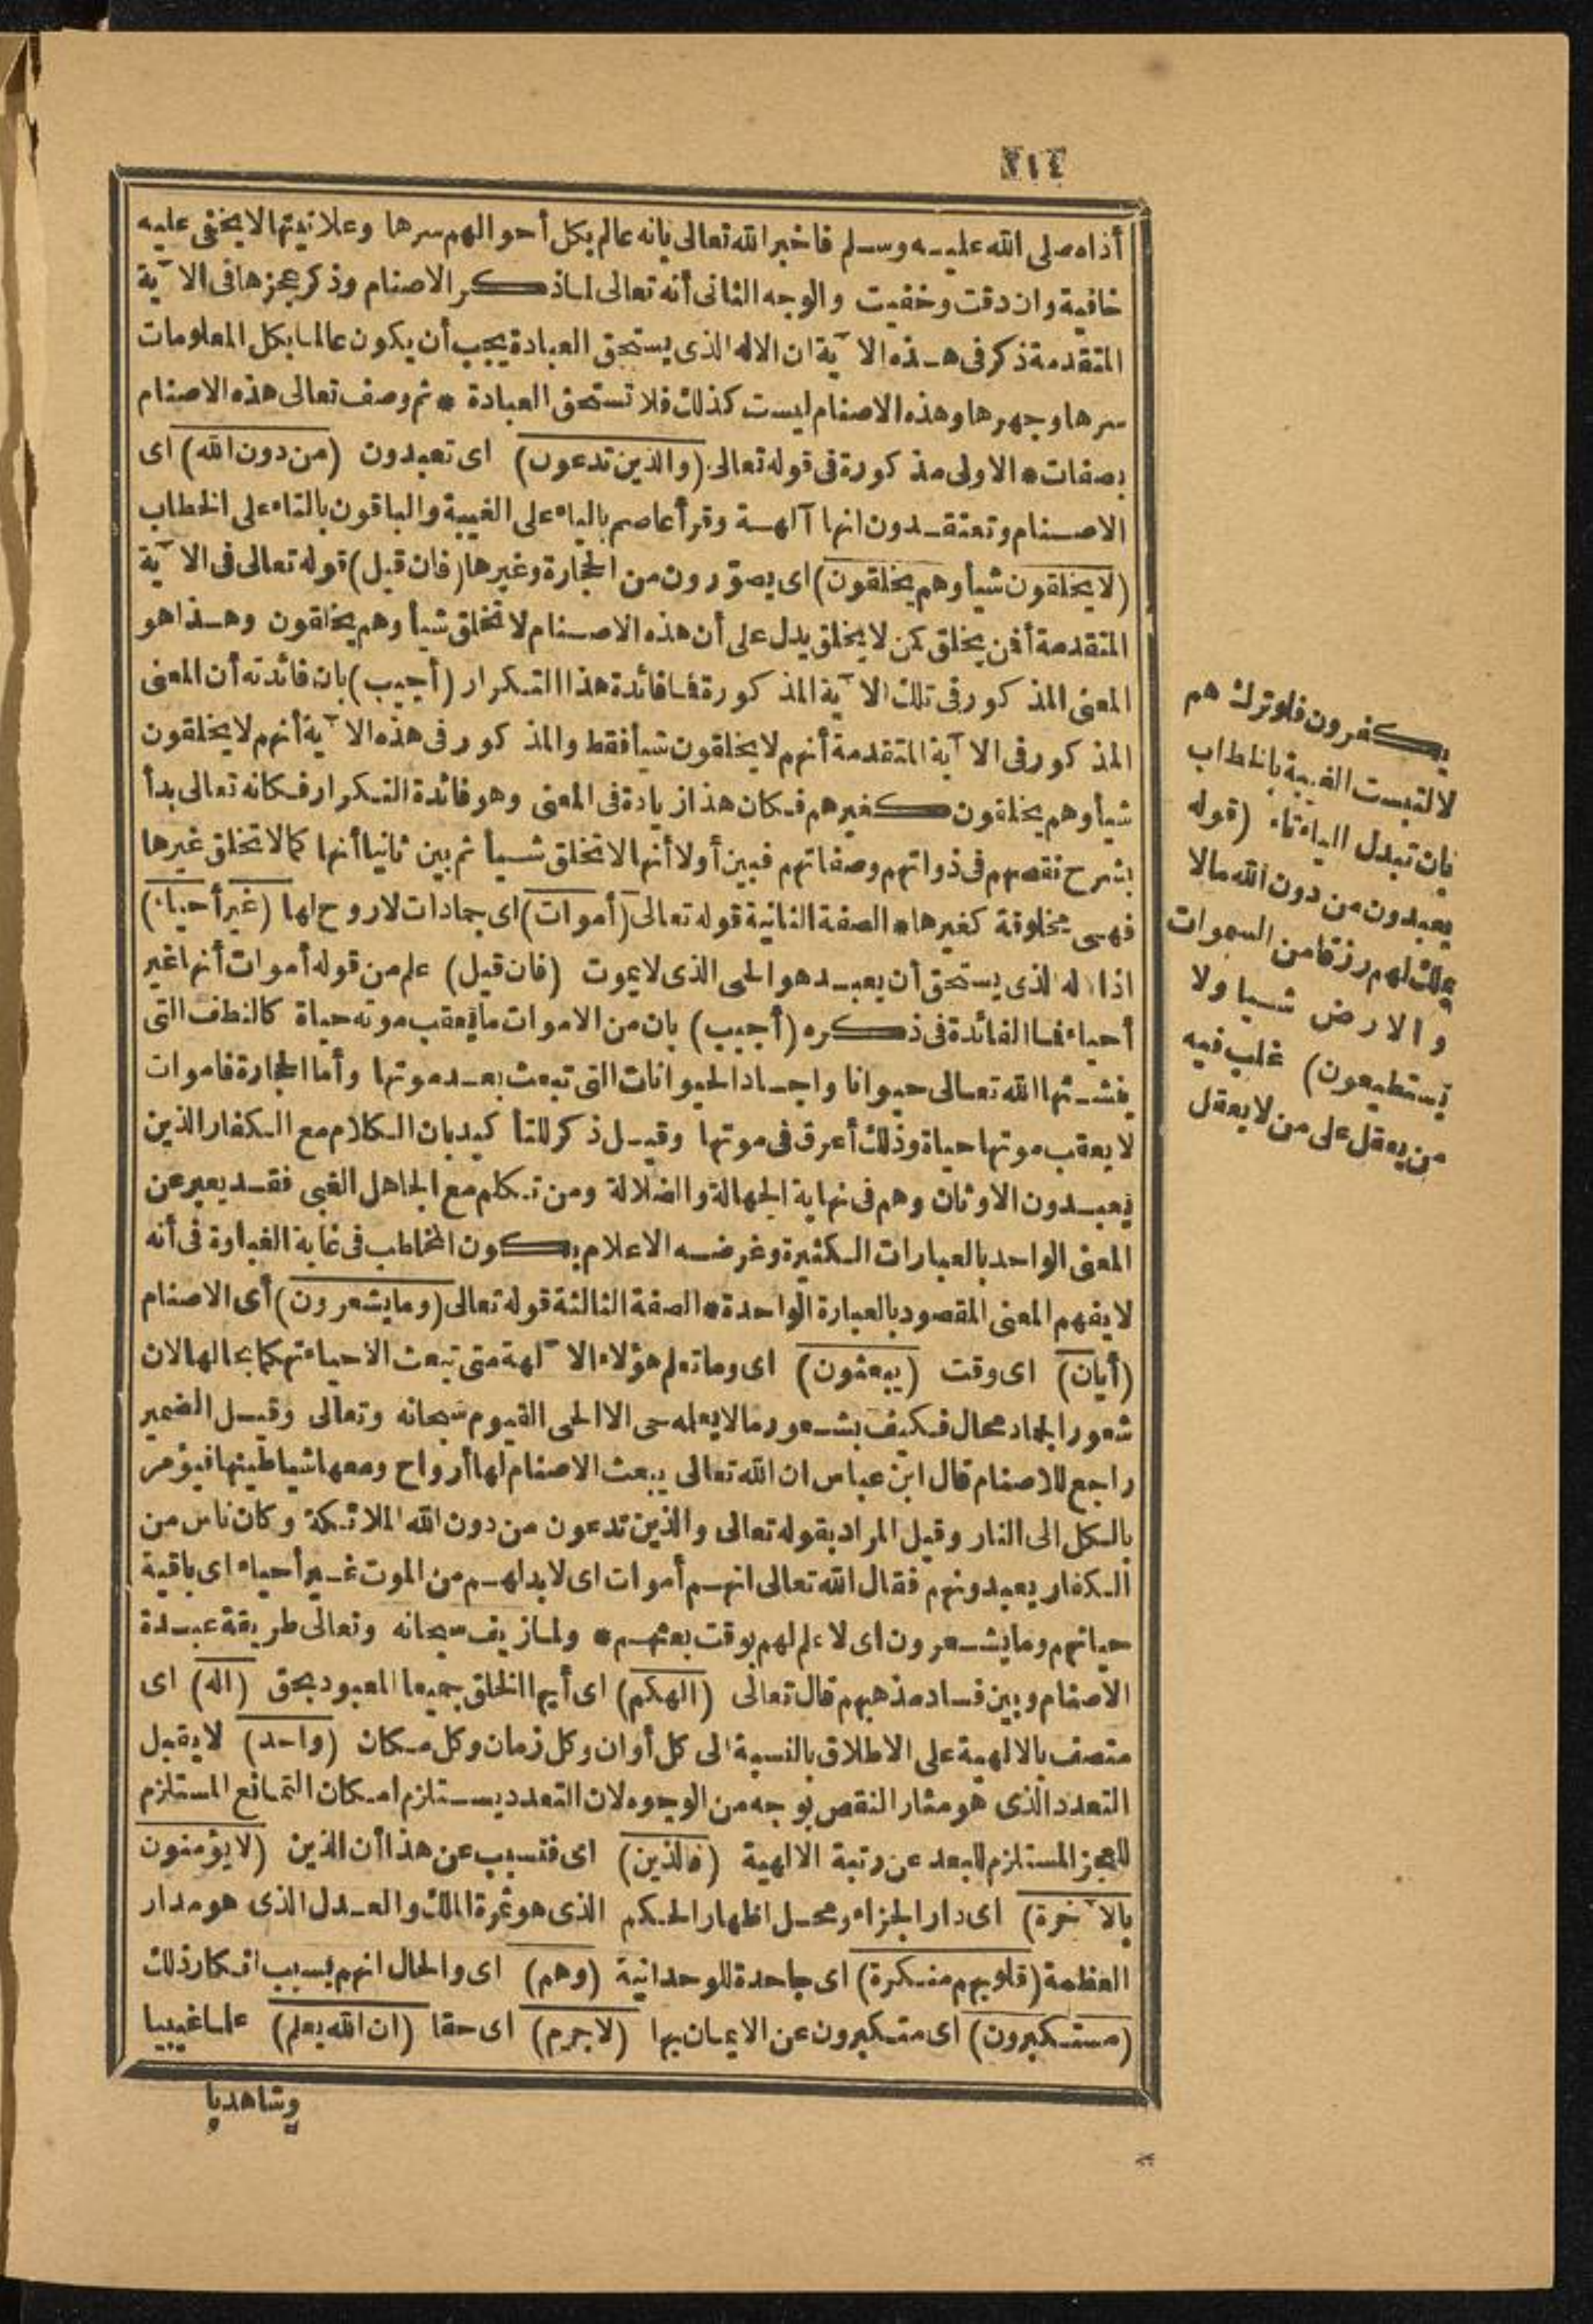 ٢١٤
أذاه صلى الله عليه وسلم فاخبر الله تعالى بانه عالم بكل أحوالهم سرها وعلانيتها لا يخفى عليه
خافية وان دقت وخفيت والوجه الثانى أنه تعالى لما ذكر الاصنام وذكر عجزها فى الآية
المتقدمة ذكر فى هذه الآية ان الاله الذى يستحق العبادة يجب أن يكون عالما بكل المعلومات
سرها وجهرها وهذه الاصنام ليست كذلك فلا تستحق العبادة * ثم وصف تعالى هذه الاصنام
بصفات * الاولى مذكورة فى قوله تعالى (والذين تدعون) اى تعبدون (من دون الله) اى
الاصنام وتعتقدون انها آلهة وقرأ عاصم بالياء على الغيبة والباقون بالتاء على الخطاب
(لا يخلقون شيأ وهم يخلقون) اى يصوّرون من الحجارة وغيرها (فان قيل) قوله تعالى فى الآية
المتقدمة أفمن يخلق كمن لا يخلق يدل على أن هذه الاصنام لا تخلق شيأ وهم يخلقون وهذا هو
المعنى المذكور فى تلك الآية المذكورة فما فائدة هذا التكرار (أجيب) بان فائدته أن المعنى
المذكور فى الآية المتقدمة أنهم لا يخلقون شيأ فقط والمذكور فى هذه الآية أنهم لا يخلقون
شيأ وهم يخلقون كغيرهم فكان هذا زيادة فى المعنى وهو فائدة التكرار فكانه تعالى بدأ
بشرح نقصهم فى ذواتهم وصفاتهم فبين أولا أنها لا تخلق شيأ ثم بين ثانيا أنها كما لا تخلق غيرها
فهى مخلوقة كغيرها * الصفة الثانية قوله تعالى (أموات) اى جمادات لا روح لها (غير أحياء)
اذ الاله الذى يستحق أن يعبد هو الحى الذى لا يموت (فان قيل) علم من قوله أموات أنها غير
أحياء فما الفائدة فى ذكره (أجيب) بان من الاموات ما يعقب موته حياة كالنطف التى
ينشئها الله تعالى حيوانا واجساد الحيوانات التى تبعث بعد موتها وأما الحجارة فاموات
لا يعقب موتها حياة وذلك أعرق فى موتها وقيل ذكر للتأكيد بان الكلام مع الكفار الذين
يعبدون الاوثان وهم فى نهاية الجهالة والضلالة ومن تكلم مع الجاهل الغبى فقد يعبر عن
المعنى الواحد بالعبارات الكثيرة وغرضه الاعلام بكون المخاطب فى غاية الغباوة فى أنه
لا يفهم المعنى المقصود بالعبارة الواحدة * الصفة الثالثة قوله تعالى (وما يشعرون) أى الاصنام
(أيان) اى وقت (يبعثون) اى وما تعلم هؤلاء الآلهة متى تبعث الاحياء تهكما بحالها لان
شعور الجماد محال فكيف بشعور ما لا يعلمه حى الا الحى القيوم سبحانه وتعالى وقيل الضمير
راجع للاصنام قال ابن عباس ان الله تعالى يبعث الاصنام لها أرواح ومعها شياطينها فيؤمر
بالكل الى النار وقيل المراد بقوله تعالى والذين تدعون من دون الله الملائكة وكان ناس من
الكفار يعبدونهم فقال الله تعالى انهم أموات اى لا بد لهم من الموت غير أحياء اى باقية
حياتهم وما يشعرون اى لا علم لهم بوقت بعثهم * ولما زيف سبحانه وتعالى طريقة عبدة
الاصنام وبين فساد مذهبهم قال تعالى (الهكم) اى أيها الخلق جميعا المعبود بحق (اله) اى
متصف بالالهية على الاطلاق بالنسبة الى كل أوان وكل زمان وكل مكان (واحد) لا يقبل
التعدد الذى هو مثار النقص بوجه من الوجوه لان التعدد يستلزم امكان التمانع المستلزم
للعجز المستلزم للبعد عن رتبة الالهية (فالذين) اى فتسبب عن هذا أن الذين (لا يؤمنون
بالآخرة) اى دار الجزاء ومحل اظهار الحكم الذى هو ثمرة الملك والعدل الذى هو مدار
العظمة (قلوبهم منكرة) اى جاحدة للوحدانية (وهم) اى والحال انهم بسبب انكار ذلك
(مستكبرون) اى متكبرون عن الايمان بها (لا جرم) اى حقا (ان الله يعلم) علما غيبيا
وشاهديا
يكفرون فلو ترك هم
لالتبست الغيبة بالخطاب
بان تبدل الياء تاء (قوله
يعبدون من دون الله مالا
يملك لهم رزقا من السموات
والارض شيا ولا
يستطيعون) غلب فيه
من يعقل على من لا يعقل